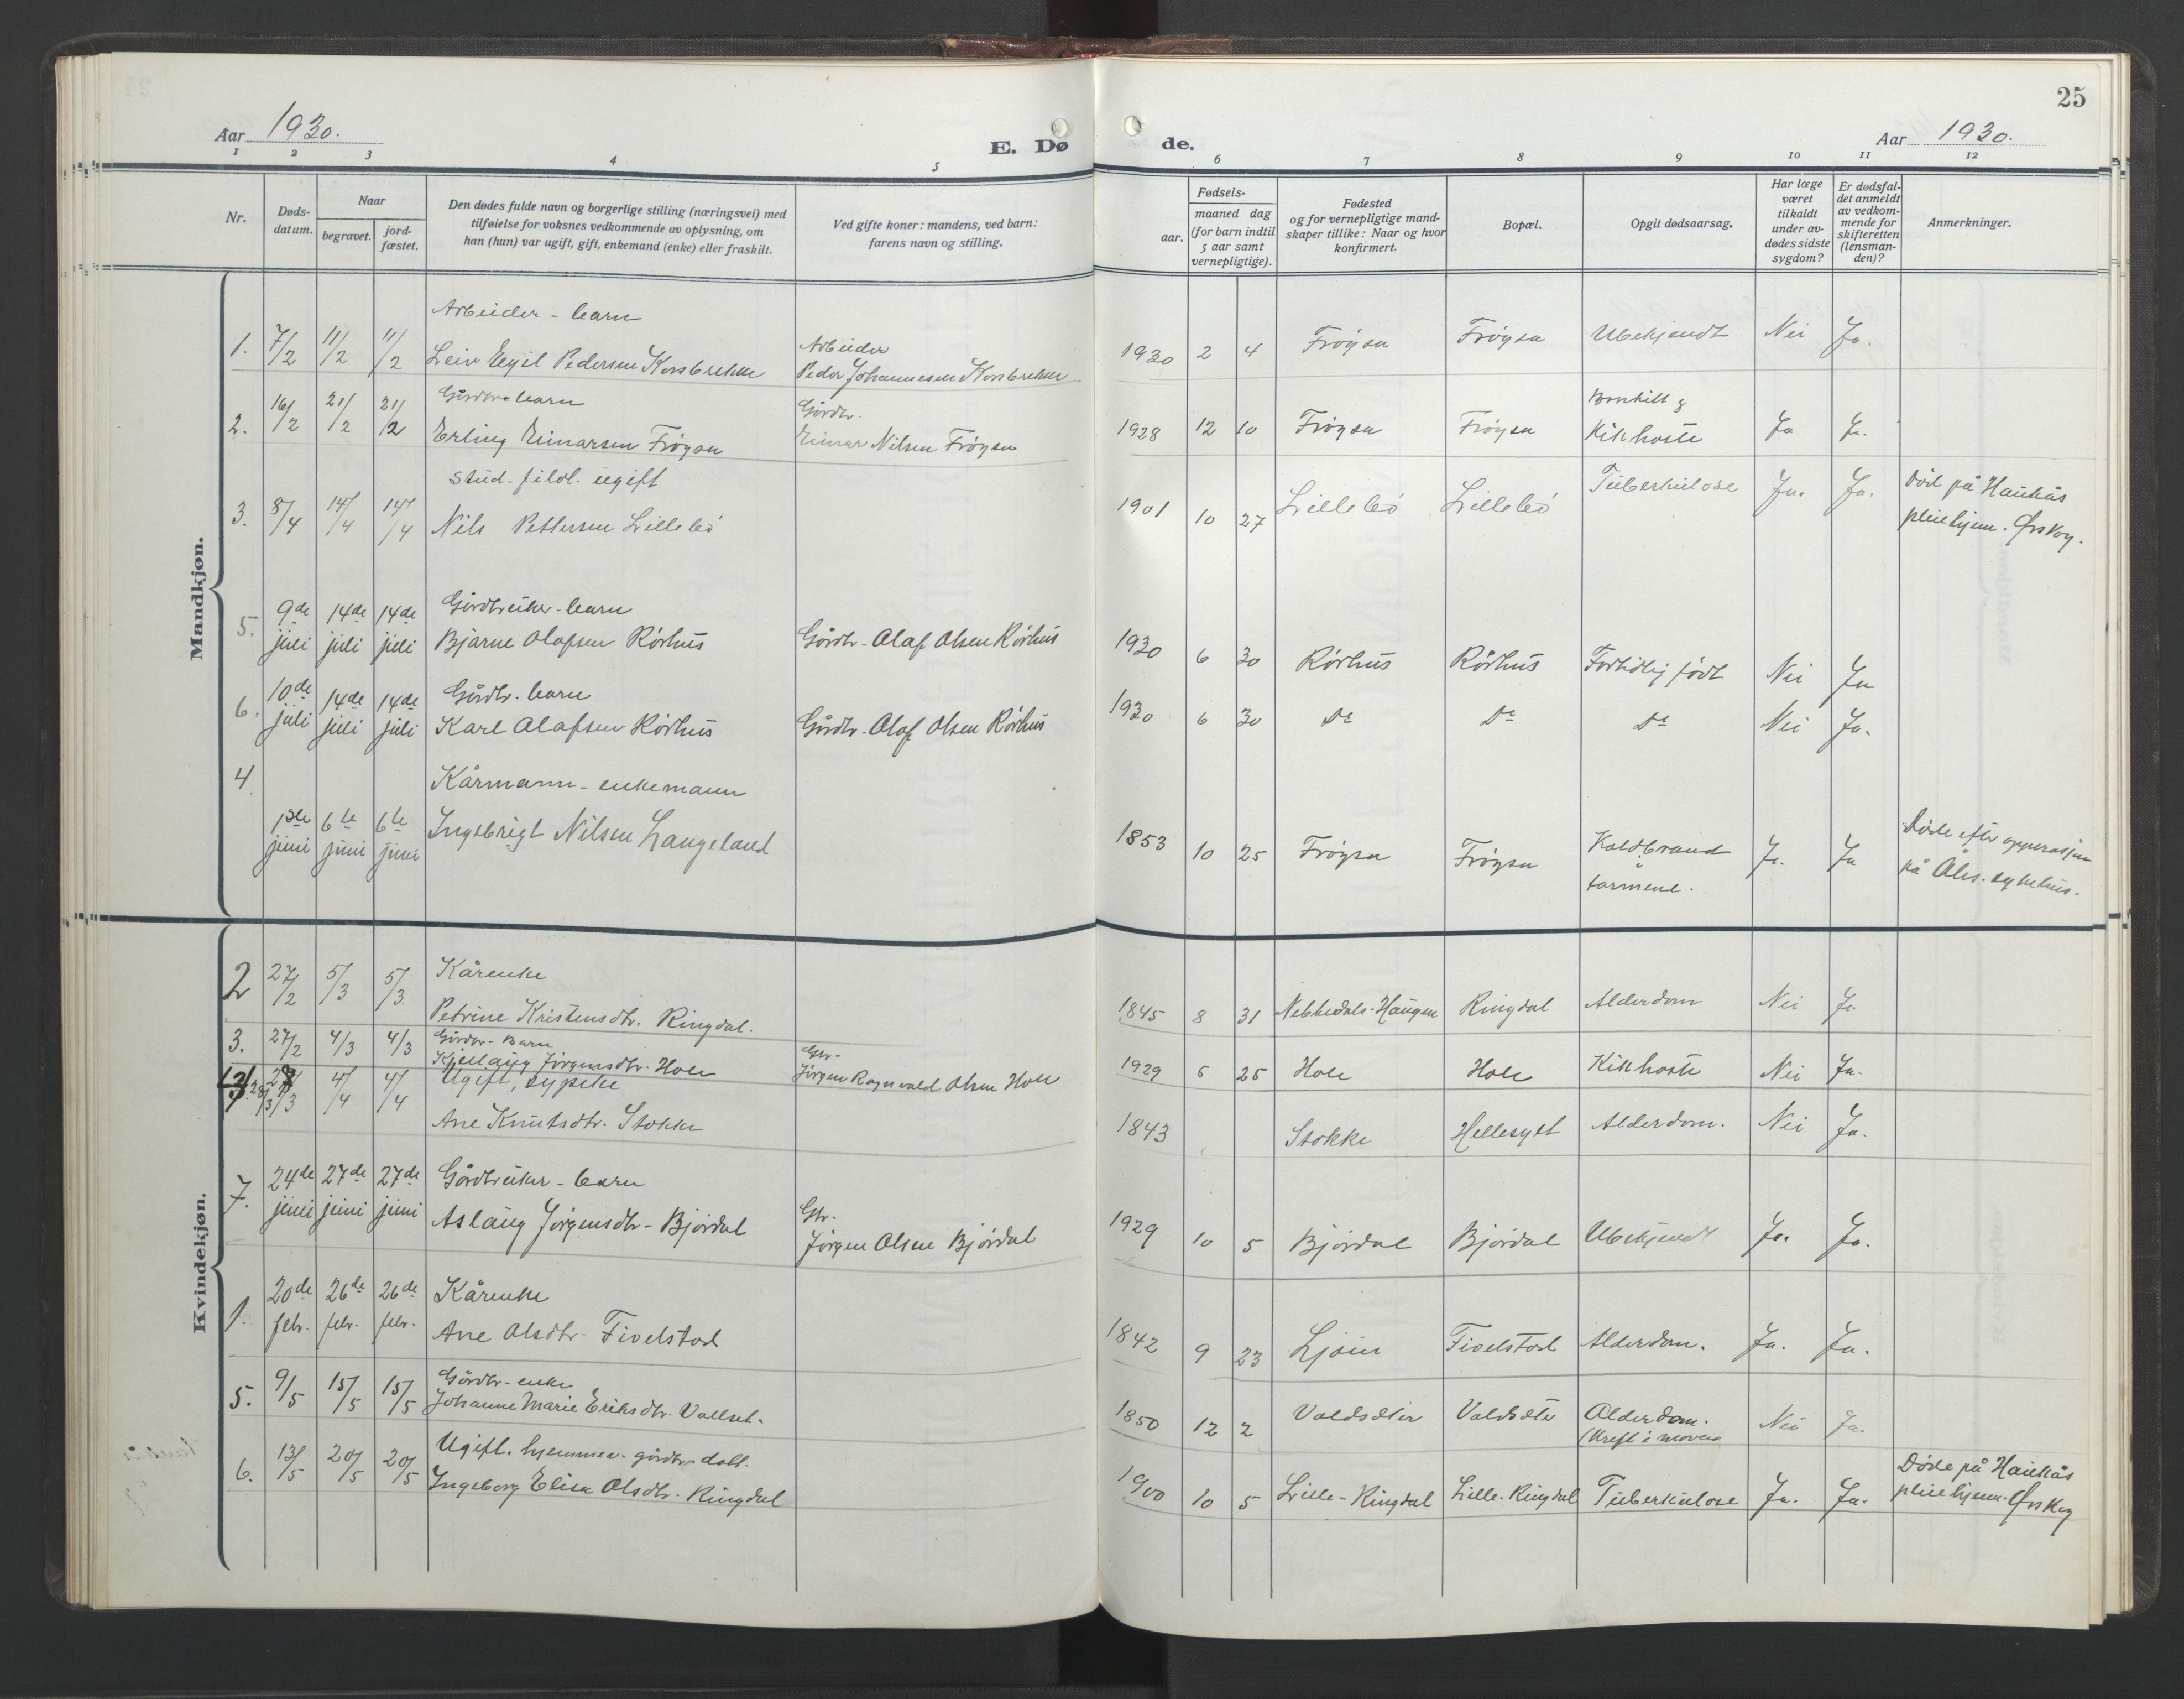 25
Aar 1930.
E. Døde.
Aar 1930.
1 2 3 4 5 6 7 8 9 10 11 12
Nr.
Døds-
datum.
Naar
begravet.
jord-
fæstet.
Den dødes fulde navn og borgerlige stilling (næringsvei) med
tilføielse for voksnes vedkommende av oplysning, om
han (hun) var ugift, gift, enkemand (enke) eller fraskilt.
Ved gifte koner: mandens, ved barn:
farens navn og stilling.
Fødsels-
aar.
maaned dag
(for barn indtil
5 aar samt
vernepligtige).
Fødested
og for vernepligtige mand-
skaper tillike: Naar og hvor
konfirmert.
Bopæl.
Opgit dødsaarsag.
Har læge
været
tilkaldt
under av-
dødes sidste
sygdom?
Er dødsfal-
det anmeldt
av vedkom-
mende for
skifteretten
(lensman-
den)?
Anmerkninger.
Mandkjøn.
Arbeider - barn
Arbeider
1. 7/2 11/2 11/2 Leiv Eegil Pedersen Korsbrekke Peder Johannesen Korsbrekke 1930 2 4 Frøysa Frøysa Ubekjendt Nei Ja.
Gårdbr - barn Gårdbr. &
2. 16/2 21/2 21/2 Erling Einarsen Frøysa Einar Nilsen Frøysa 1928 12 10 Frøysa Frøysa Kikhoste Ja Ja.
Stud. filol. ugift
3. 8/4 14/4 14/4 Nils Pettersen Lillebö 1901 10 27 Lillebö Lillebö Tuberkulose Ja. Ja. Död på Haukås
pleiehjem. Ørskog.
5. 9de 14de 14de Gårdbruker - barn
juli juli juli Bjarne Olafsen Rörhus Gårdbr - Olaf Olsen Rörhus 1930 6 30 Rörhus Rörhus Fortidlig födt Nei Ja
6. 10de 14de 14de Gårdbr. barn
juli juli juli Karl Olafsen Rörhus Gårdbr - Olaf Olsen Rörhus 1930 6 30 Do Do Do Nei Ja.
4. Kårmann - enkemann
1ste 6te 6te Ingebrigt Nilsen Langeland 1853 10 25 Frøysa Frøysa Koldbrand Ja. Ja Döde efter opperasjon
juni juni juni i
tarmene. på Åles. sykehus.
Kvindekjøn.
2 27/2 5/3 5/3 Kårenke
Petrine Kristensdtr. Ringdal. 1845 8 31 Nebbedals-Haugen Ringdal Alderdom Nei Ja
3. 27/2 4/3 4/3 Gårdbr - Barn Gbr -
Kjellaug Jörgensdtr. Hole Jörgen Ragnvald Olsen Hole 1929 5 25 Hole Hole Kikhoste Nei Ja.
28/3 4/4 4/4 Ugift, sypike
Ane Knutsdtr. Stokke 1843 Stokke Hellesylt Alderdom. Nei Ja.
7. 24de 27de 27de Gårdbruker - barn Gbr.
juni juni juni Aslaug Jörgensdtr - Bjørdal Jörgen Olsen Bjørdal 1929 10 5 Bjørdal Bjørdal Ubekjendt Ja. Ja.
1. 20de 26de 26de Kårenke
febr. febr. febr. Ane Olsdtr - Fivelstad 1842 9 23 Ljöen Fivelstad Alderdom. Ja. Ja.
5. 9/5 15/5 15/5 Gårdbr - enke
Johanne Marie Eriksdtr. Vollset. 1850 12 2 Voldsæter Voldsæter Alderdom. Nei Ja.
(Kreft i maven
6. 13/5 20/5 20/5 Ugift. hjemmev. gårdbr - datt.
Ingeborg Elise Olsdtr. Ringdal 1900 10 5 Lille-Ringdal Lille-Ringdal Tuberkulose Ja. Ja. Döde på Haukås
pleiehjem. Ørskog